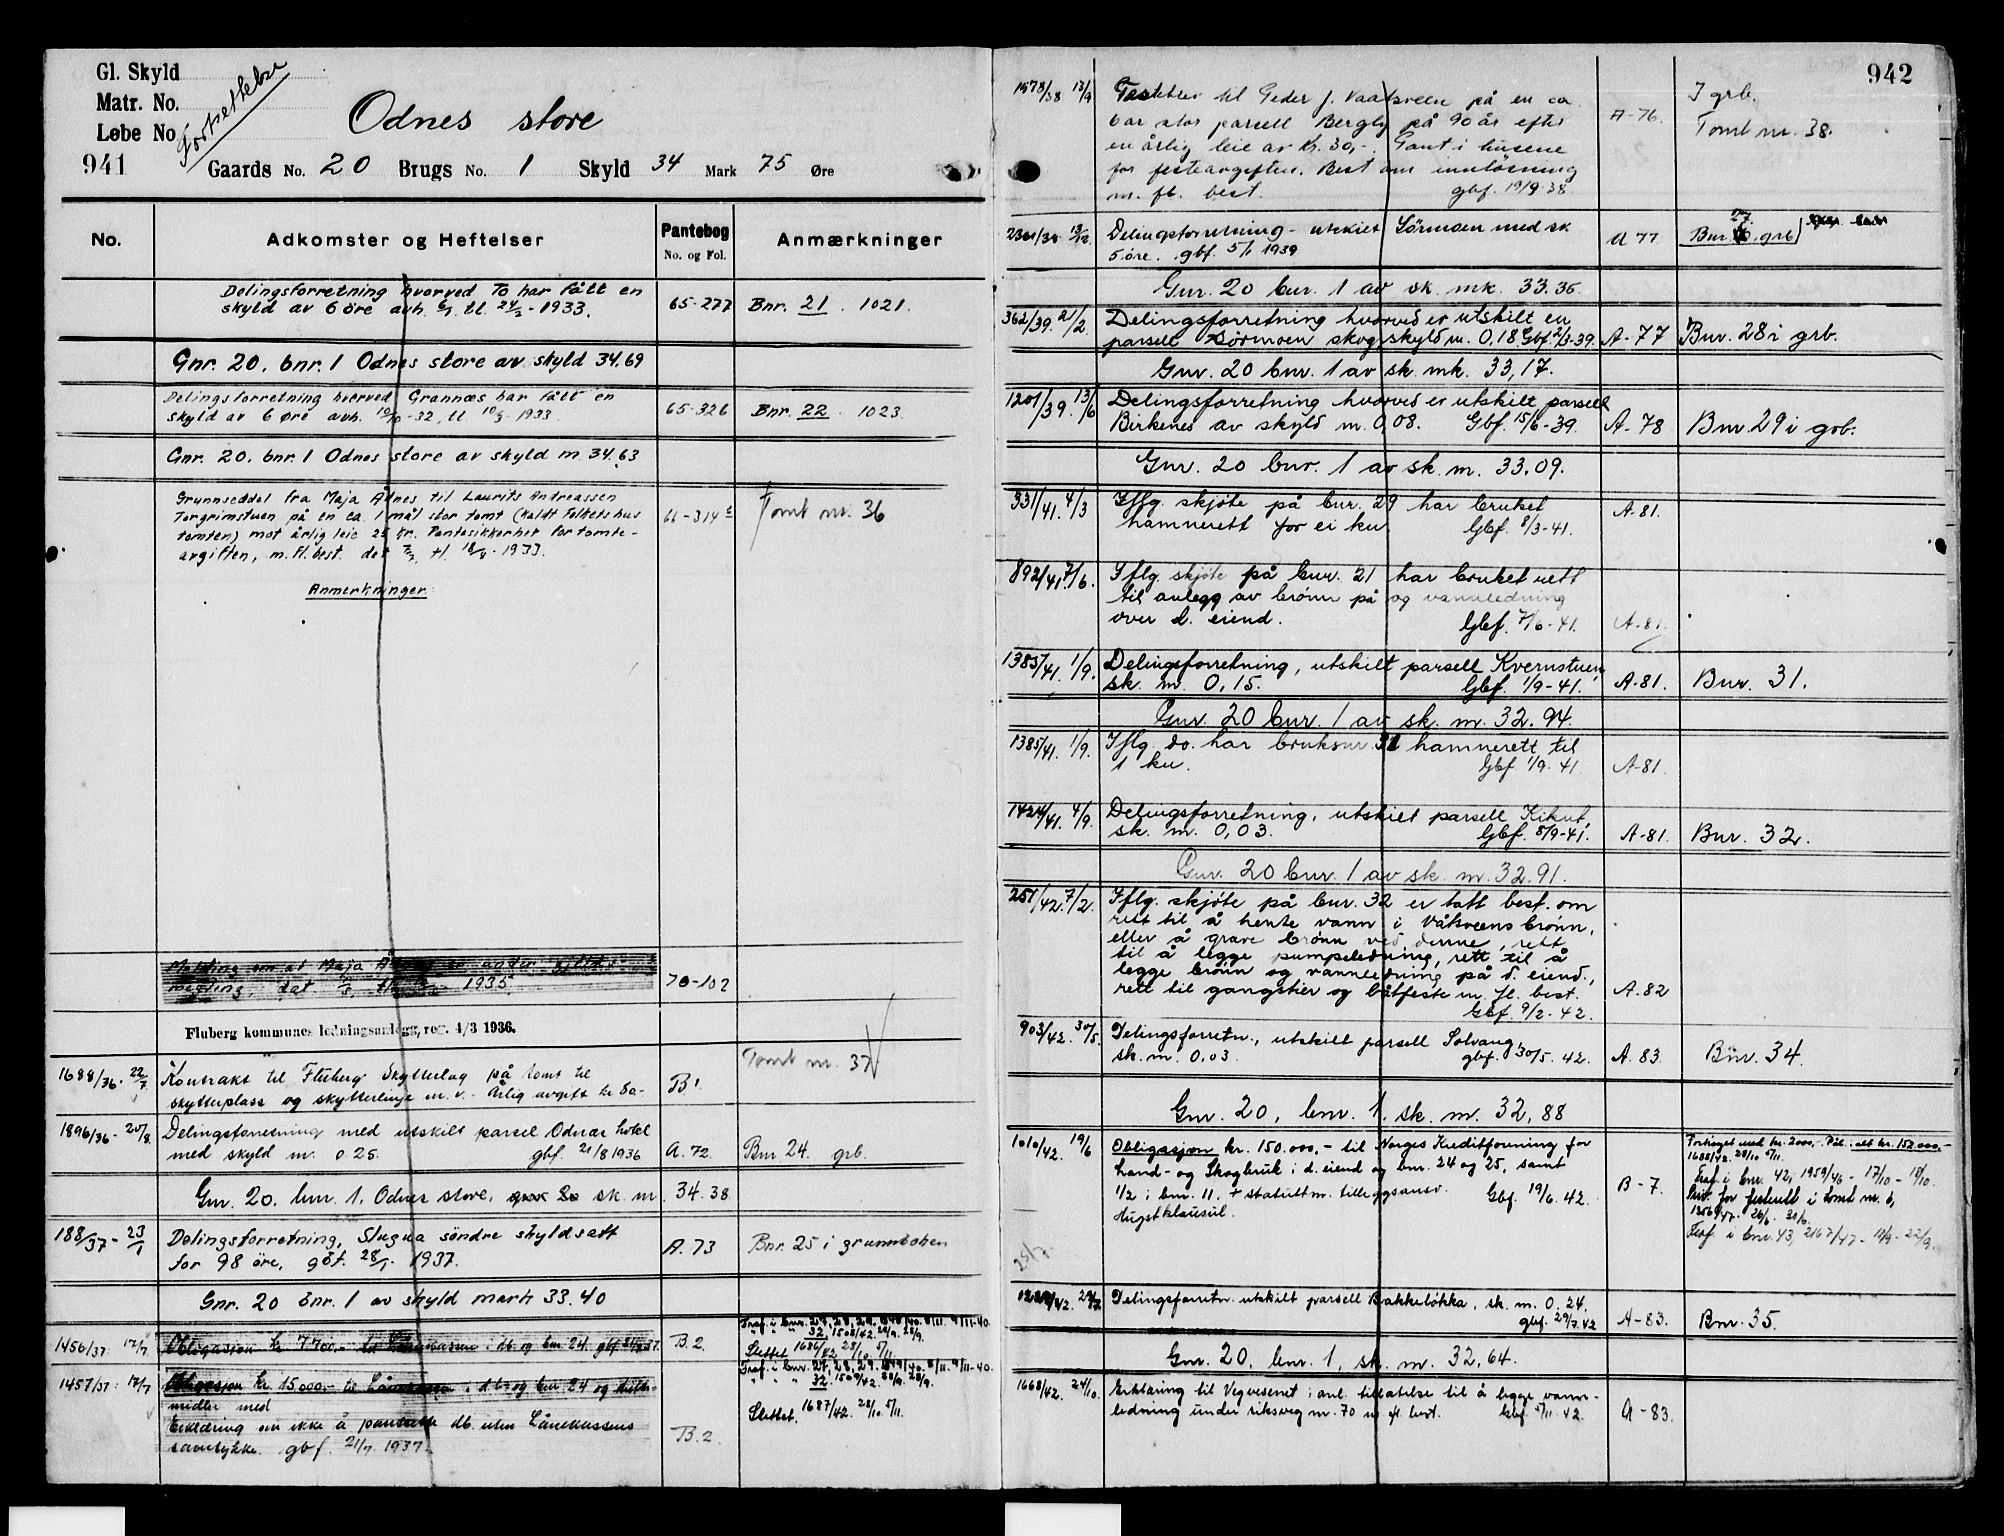 Gl. Skyld
Matr. No.
Løbe No.
Fortsettelse
Odnes store
941
Gaards No. 20 Brugs No. 1 Skyld 34 Mark 75 Øre
No. Adkomster og Heftelser Pantebog No. og Fol. Anmærkninger
Delingsforretning hvorved To har fått en
skyld av 6 öre avh. 6/1 tl. 24/2 - 1933. 65-277 Bnr. 21. 1021.
Gnr. 20. bnr. 1 Odnes store av skyld 34.69
Delingsforretning hvorved Grannæs har fått en
skyld av 6 öre avh. 19/10-32, tl. 10/3 - 1933. 65-326 Bnr. 22. 1023.
Gnr. 20. bnr. 1 Odnes store av skyld m. 34.63
Grunnseddel fra Maja Ådnes til Laurits Andreassen
Torgrimstuen på en ca. 1 mål stor tomt (kaldt Folkets hus
tomten) mot årlig leie 25 kr. Pantesikkerhet for tomte-
avgiften, m.fl. best. dat. tl. 18/8 - 1933. 66-314 Tomt nr. 36
Anmerkninger:
Melding om at Maja
megling, dat. 1935. 70-102
Fluberg kommunes ledningsanlegg, reg. 4/3 1936.
1688/36 - 22/7 Kontrakt til Fluberg Skytterlag på tomt til
skytterplass og skytterlinje m.v. Årlig avgift kr 50- B1. Tomt nr. 37
1896/36 - 20/8 Delingsforretning med utskilt parsel Odnæs hotel
med skyld m. 0.25. gbf. 21/8 1936 A. 72. Bnr 24. grb.
Gnr. 20. bnr. 1. Odnes store, sk. m. 34.38
188/37 - 23/1 Delingsforretning, Slugua söndre skyldsatt
for 98 öre, gbf. 28/1 1937. A. 73 Bnr. 25 i grunnboken
Gnr. 20 bnr. 1 av skyld mark 33.40
1456/37. 17/7 Obligasjon kr 7700.- til Lånekassen i db. og bnr 24. gbf 21/7 37. B. 2.
Traf. i bnr. 27, 28, 29. 1848/40. 8/11. 9/11-40.
" " " 32 1508/42. 20/9. 28/9.
Slettet 1686/42 28/10 5/11.
1457/37. 17/7 Obligasjon kr. 15000.- til Lånekassen i db og bnr 24 og
midler med
Erklæring om ikke å pantsette db. uten Lånekassens
samtykke. gbf. 21/7. 1937. B. 2.
Traf. i bnr. 27, 28, 29. 1849/40. 8/11. 9/11-40.
" " " 32. 1509/42. 20/9. 28/9.
Slettet. 1687/42. 28/10. 5/11.
942
1578/38 13/9 Festebrev til Peder J. Vaatsveen på en ca
dar stor parsell Bergly på 90 år efter
en årlig leie av kr. 30,-. Pant i husene
for festeavgiften. Best om innlösning
m. fl. best. gbf. 19/9-38. A-76. I grb.
Tomt nr. 38.
2361/38 13/12 Delingsforretning - utskilt Sörmoen med sk
5 öre. gbf. 5/1 1939 A 77 Bnr 27. grb
Gnr. 20 bnr. 1 av sk. mk. 33.35.
362/39. 21/2. Delingsforretning hvorved er utskilt en
parsell Sörmoen skog, skyld m. 0,18. Gbf. 2/3-39. A-77 Bnr. 28 i grb.
Gnr. 20 bnr. 1 av sk. mk. 33,17.
1201/39. 13/6 Delingsforretning hvorved er utskilt parsell
Birkenes av skyld m. 0,08. Gbf. 15/6-39. A-78 Bnr. 29 i grb.
Gnr. 20 bnr. 1 av sk. m. 33.09.
331/41. 4/3 Iflg. skjöte på bnr. 29 har bruket
hamnerett for ei ku. Gbf. 8/3-41. A.81.
892/41. 7/6. Iflg. skjöte på bnr. 21 har bruket rett
til anlegg av brönn på og vannledning
over d. eiend. Gbf. 7/6-41. A-81.
1385/41. 1/9. Delingsforretning, utskilt parsell Kvernstuen,
sk. m. 0,15. Gbf. 1/9-41. A-81. Bnr. 31.
Gnr. 20 bnr. 1 av sk. m. 32.94.
1385/41. 1/9. Iflg. do. har bruksnr. 31 hamnerett til
1 ku. Gbf. 1/9-41. A-81.
1424/41. 4/9. Delingsforretning, utskilt parsell Kikut,
sk. m. 0,03. Gbf. 8/9-41. A-81. Bnr. 32.
Gnr. 20 bnr. 1 av sk. m. 32.91.
251/42. 7/2. Iflg. skjöte på bnr. 32 er tatt best. om
rett til å hente vann i Våtsveens brönn,
eller å grave brönn ved denne, rett
til å legge pumpeledning, rett til å
legge brönn og vannledning på d. eiend.
rett til gangstier og båtfeste m. fl. best.
Gbf. 9/2-42. A.82
903/42. 30/5. Delingsforretn., utskilt parsell Solvang,
sk. m. 0.03. gbf. 30/5. 42. A. 83. Bnr. 34.
Gnr. 20, bnr. 1. sk. m. 32,88
1010/42. 19/6 Obligasjon kr. 150.000,- til Norges Kreditforening for
Land- og Skogbruk i d. eiend og bnr. 24 og 25, samt
1/2 i bnr. 11. + statuttm. tilleggsansv. Gbf. 19/6. 42.
Hugstklausul. B-7.
Forhöyet med kr. 2000,- Pål. i alt kr. 152.000,-
1688/42. 28/10 5/11.
Traf. i bnr. 42, 1959/46 - 17/10 - 18/10.
Prior. for festerett i tomt nr. 6,
1356/47. 26/6. 30/6.
Traf. i bnr. 43, 2167/47 - 18/9 - 22/9.
25/7.
29/7 Delingsforretn. utskilt parsell Bakkelökka, sk. m. 0.24.
gbf. 29/7.42 A-83. Bnr. 35.
Gnr. 20, bnr. 1, sk. m. 32,64.
1668/42. 24/10. Erklæring til Vegvesenet i anl. tillatelse til å legge vann-
ledning under riksveg nr. 70 m. fl. best. Gbf. 5/11. 42. A-83.